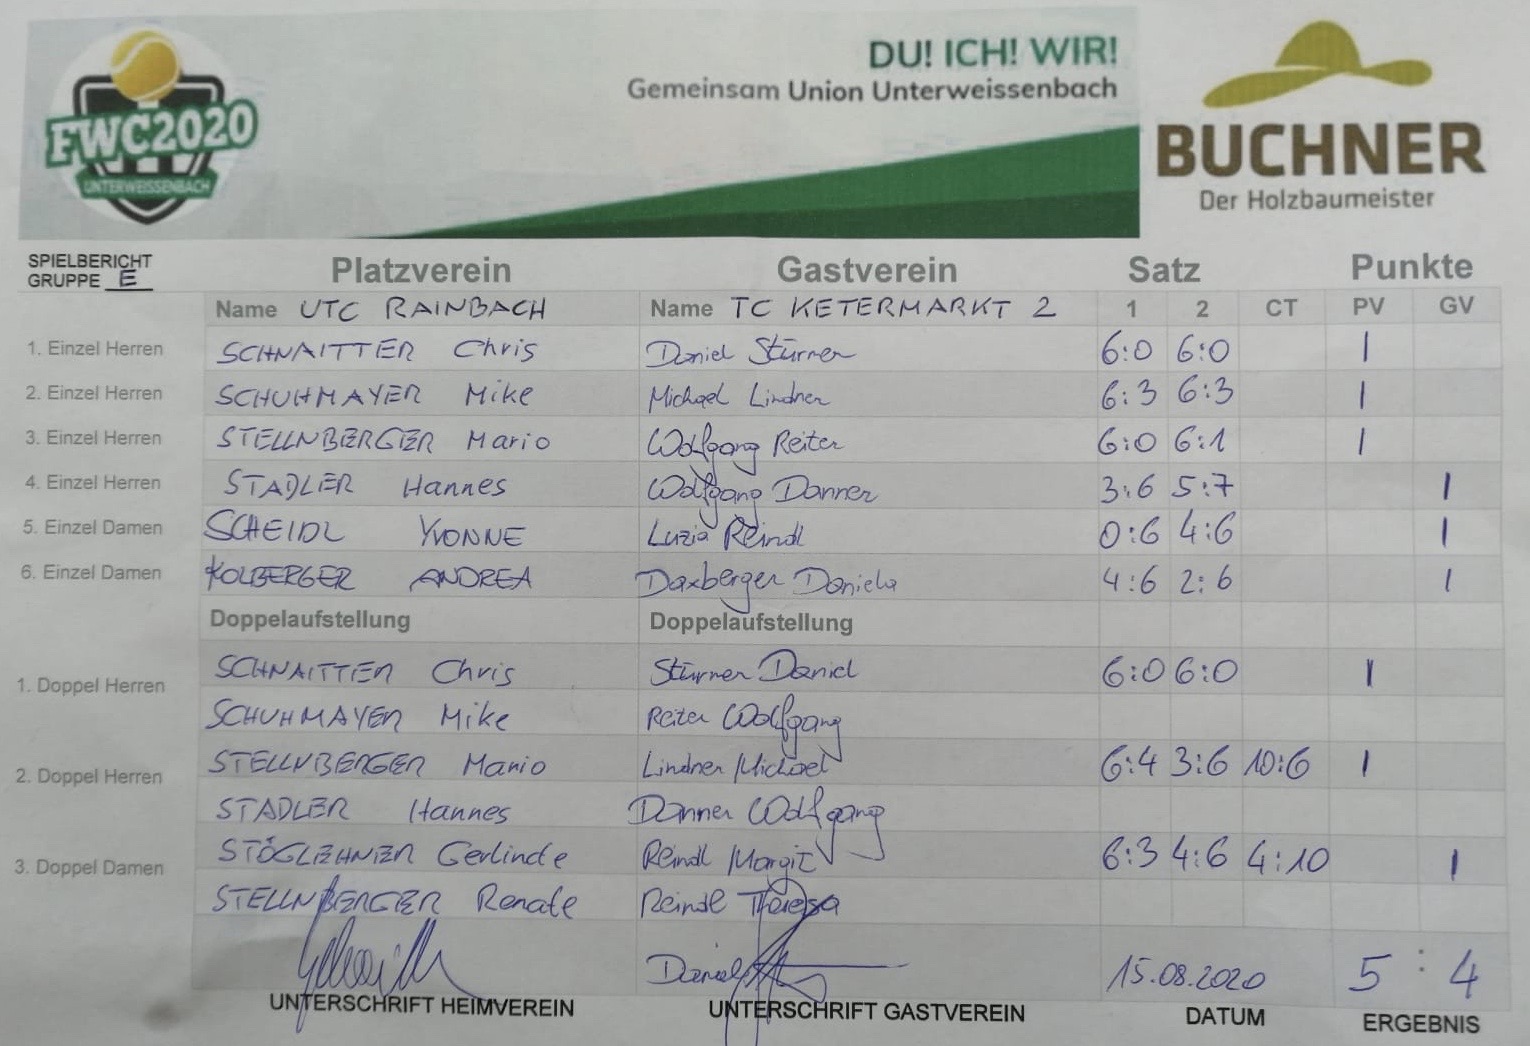 DU! ICH! WIR!
Gemeinsam Union Unterweissenbach
FWC2020
UNTERWEISSENBACH
BUCHNER
Der Holzbaumeister
SPIELBERICHT
GRUPPE E
Platzverein Gastverein Satz Punkte
Name UTC RAINBACH Name TC KETERMARKT 2 1 2 CT PV GV
1. Einzel Herren SCHNAITTER Chris Daniel Stürner 6:0 6:0 1
2. Einzel Herren SCHUHMAYER Mike Michael Lindner 6:3 6:3 1
3. Einzel Herren STELLNBERGER Mario Wolfgang Reiter 6:0 6:1 1
4. Einzel Herren STADLER Hannes Wolfgang Danner 3:6 5:7 1
5. Einzel Damen SCHEIDL YVONNE Luzia Reindl 0:6 4:6 1
6. Einzel Damen KOLBERGER ANDREA Daxberger Daniela 4:6 2:6 1
Doppelaufstellung Doppelaufstellung
1. Doppel Herren SCHNAITTER Chris Stürner Daniel 6:0 6:0 1
SCHUHMAYER Mike Reiter Wolfgang
2. Doppel Herren STELLNBERGER Mario Lindner Michael 6:4 3:6 10:6 1
STADLER Hannes Danner Wolfgang
3. Doppel Damen STÖGLEHNER Gerlinde Reindl Margit 6:3 4:6 4:10 1
STELLNBERGER Renate Reindl Theresa
Daniel 15.08.2020 5 : 4
UNTERSCHRIFT HEIMVEREIN UNTERSCHRIFT GASTVEREIN DATUM ERGEBNIS